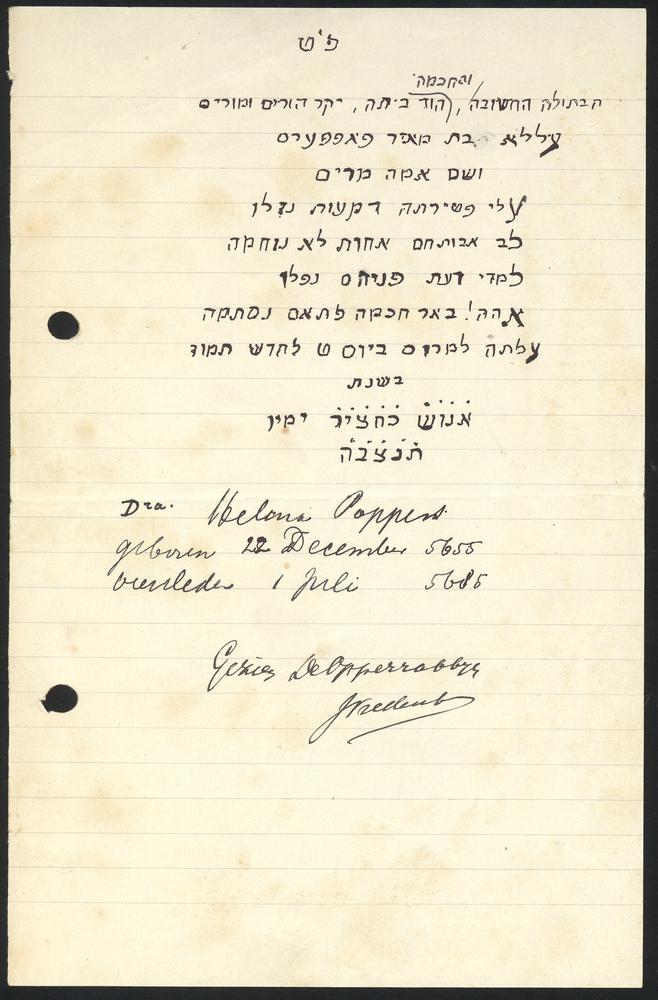 פ״ט
והחכמה
הבתולה החשובה, הוד ביתה, יקר הורים ומורים
עללא בת מאיר פאפפערס
ושם אמה מרים
עלי פטירתה דמעות נזלו
לב אבותם אחות לא נוחמה
למדי דעת פניהם נפלו
אהה! באר חכמה פתאם נסתמה
עלתה למרום ביום ט לחדש תמוז
בשנת
אנוש כחציר ימיו
תנצבה
Dra. Helena Poppers
geboren 22 December 5655
overleden 1 Juli 5685
Gezien De Opperrabbijn